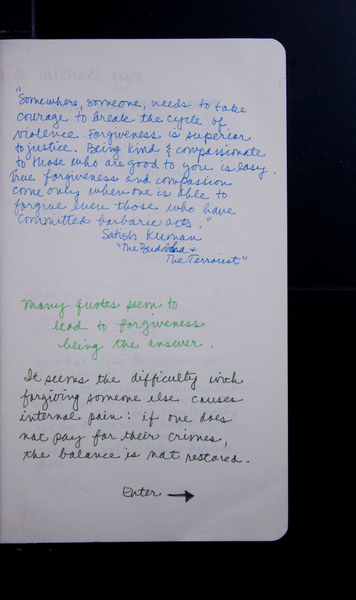 "Somewhere, someone, needs to take
courage to break the cycle of
violence. Forgiveness is superior
to justice. Being kind & compassionate
to those who are good to you is easy.
True forgiveness and compassion
come only when one is able to
forgive even those who have
committed barbaric acts."
Satish Kumar
"The Buddha &
The Terrorist"
Many quotes seem to
lead to forgiveness
being the answer.
It seems the difficulty with
forgiving someone else causes
internal pain: if one does
not pay for their crimes,
the balance is not restored.
Enter →